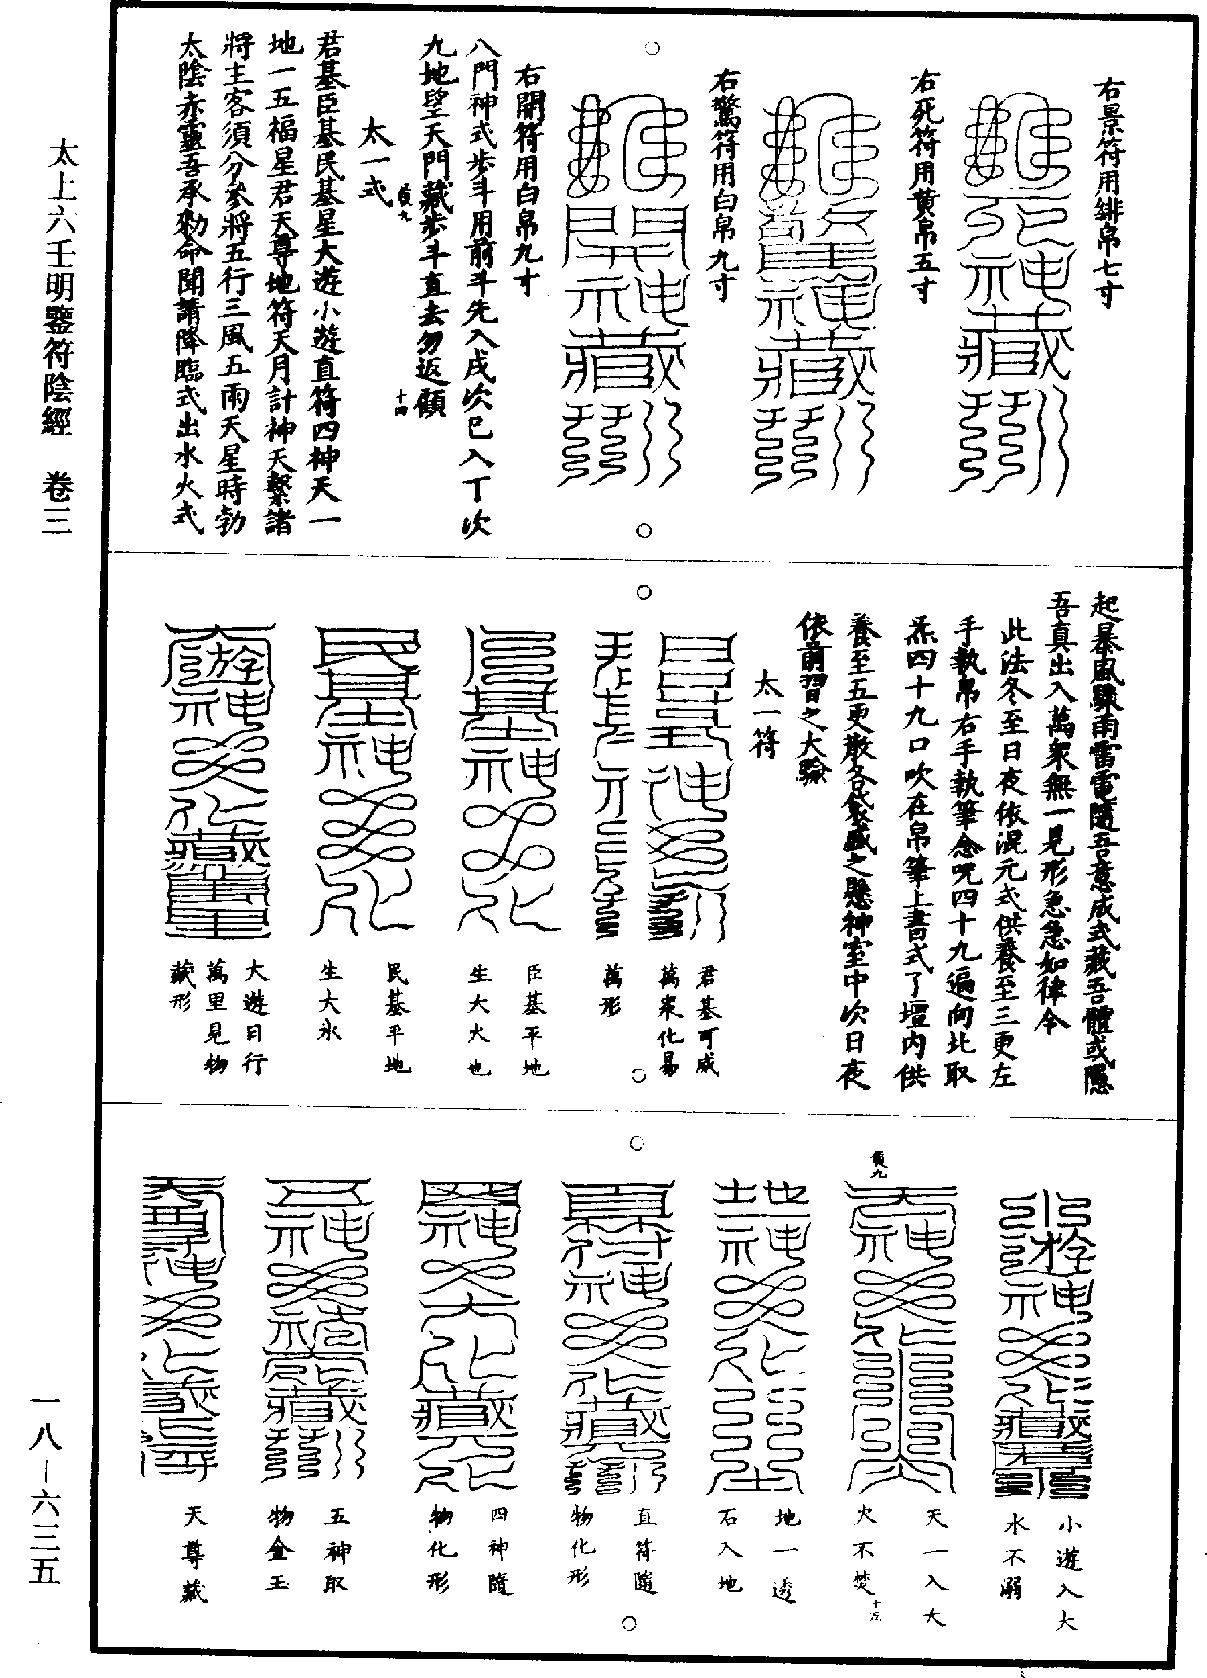 右景符用緋帛七寸
右死符用黃帛五寸
右驚符用白帛九寸
右開符用白帛九寸
八門神式步斗用前斗先入戌次巳入丁次
九地望天門藏步斗直去勿返顧
十四
太一式
貞九
君基臣基民基星大遊小遊直符四神天一
地一五福星君天尊地符天月計神天繫諸
將主客須分參將五行三風五雨天星時勃
太陰赤靈吾承勑命聞請降臨式出水火式
起暴風驟雨雷電隨吾意成式藏吾體或隱
吾真出入萬衆無一見形急急如律令
此法冬至日夜依混元式供養至三更左
手執帛右手執筆念呪四十九遍向北取
炁四十九口吹在帛筆上書式了壇內供
養至五更散各袋盛之懸神室中次日夜
依前習之大驗
太一符
君基可咸
萬衆化易
萬形
臣基平地
生大火也
民基平地
生大水
大遊日行
萬里見物
藏形
小遊入大
水不溺
貞九
天一入大
火不焚
十五
地一透
石入地
直符隨
物化形
四神隨
物化形
五神取
物金玉
天尊藏
太上六壬明鑒符陰經 卷三
一八-六三五